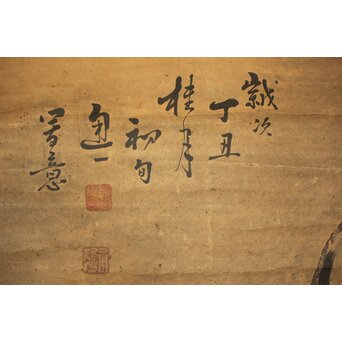 歳次
丁丑
桂月
初旬
写意